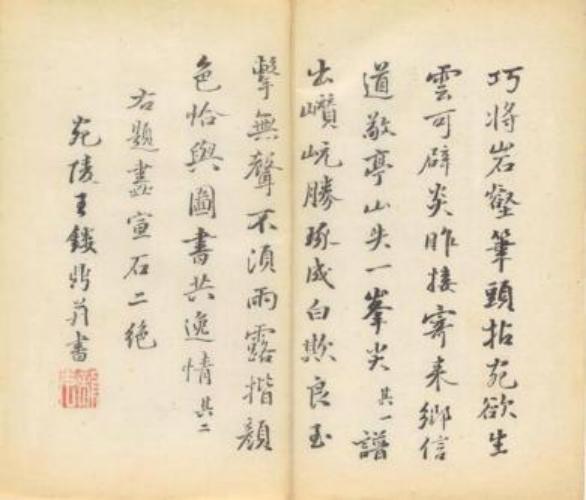 巧將岩壑筆頭拈宛欲生
雲可辟炎昨接寄來鄉信
道敬亭山头一峯尖其一譜
出巑岏勝琢成白欺良玉
擊無聲不須雨露揩顏
色恰與圖書共逸情其二
右題畫宣石二絕
宛陵王鋑鼎